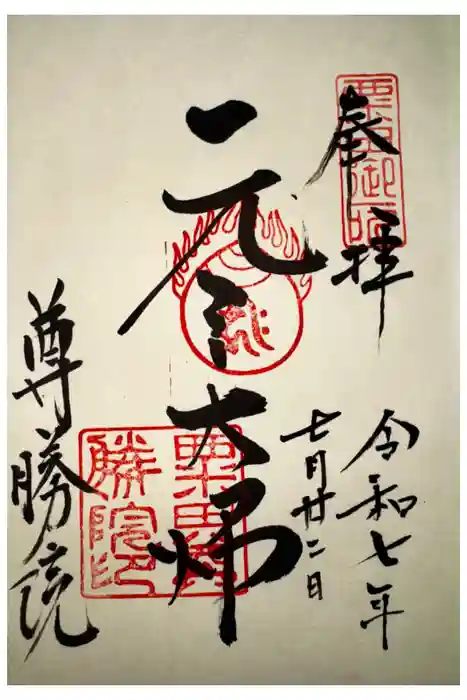 奉拝
令和七年
七月廿二日
元三大師
粟田尊
勝院印
尊勝院